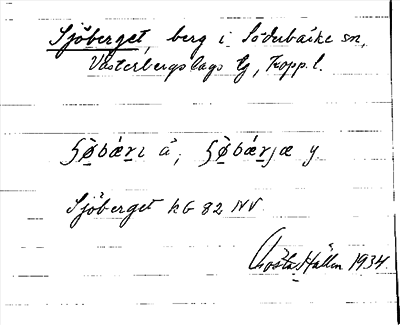 Sjöberget, berg i Söderbärke sn,
Västerbergslags tg, Kopp. l.
å, y
Sjöberget KG 82 NV.
Gösta Hallén 1934.